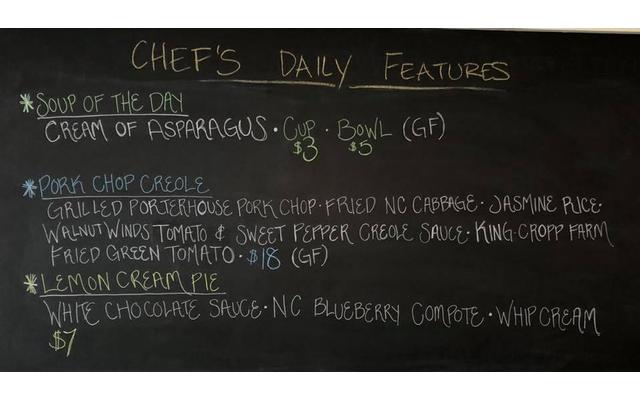 CHEF'S DAILY FEATURES
*SOUP OF THE DAY
CREAM OF ASPARAGUS · CUP · BOWL (GF)
$3 $5
*PORK CHOP CREOLE
GRILLED PORTERHOUSE PORK CHOP · FRIED NC CABBAGE · JASMINE RICE ·
WALNUT WINDS TOMATO & SWEET PEPPER CREOLE SAUCE · KING-CROPP FARM
FRIED GREEN TOMATO · $18 (GF)
*LEMON CREAM PIE
WHITE CHOCOLATE SAUCE · NC BLUEBERRY COMPOTE · WHIP CREAM
$7